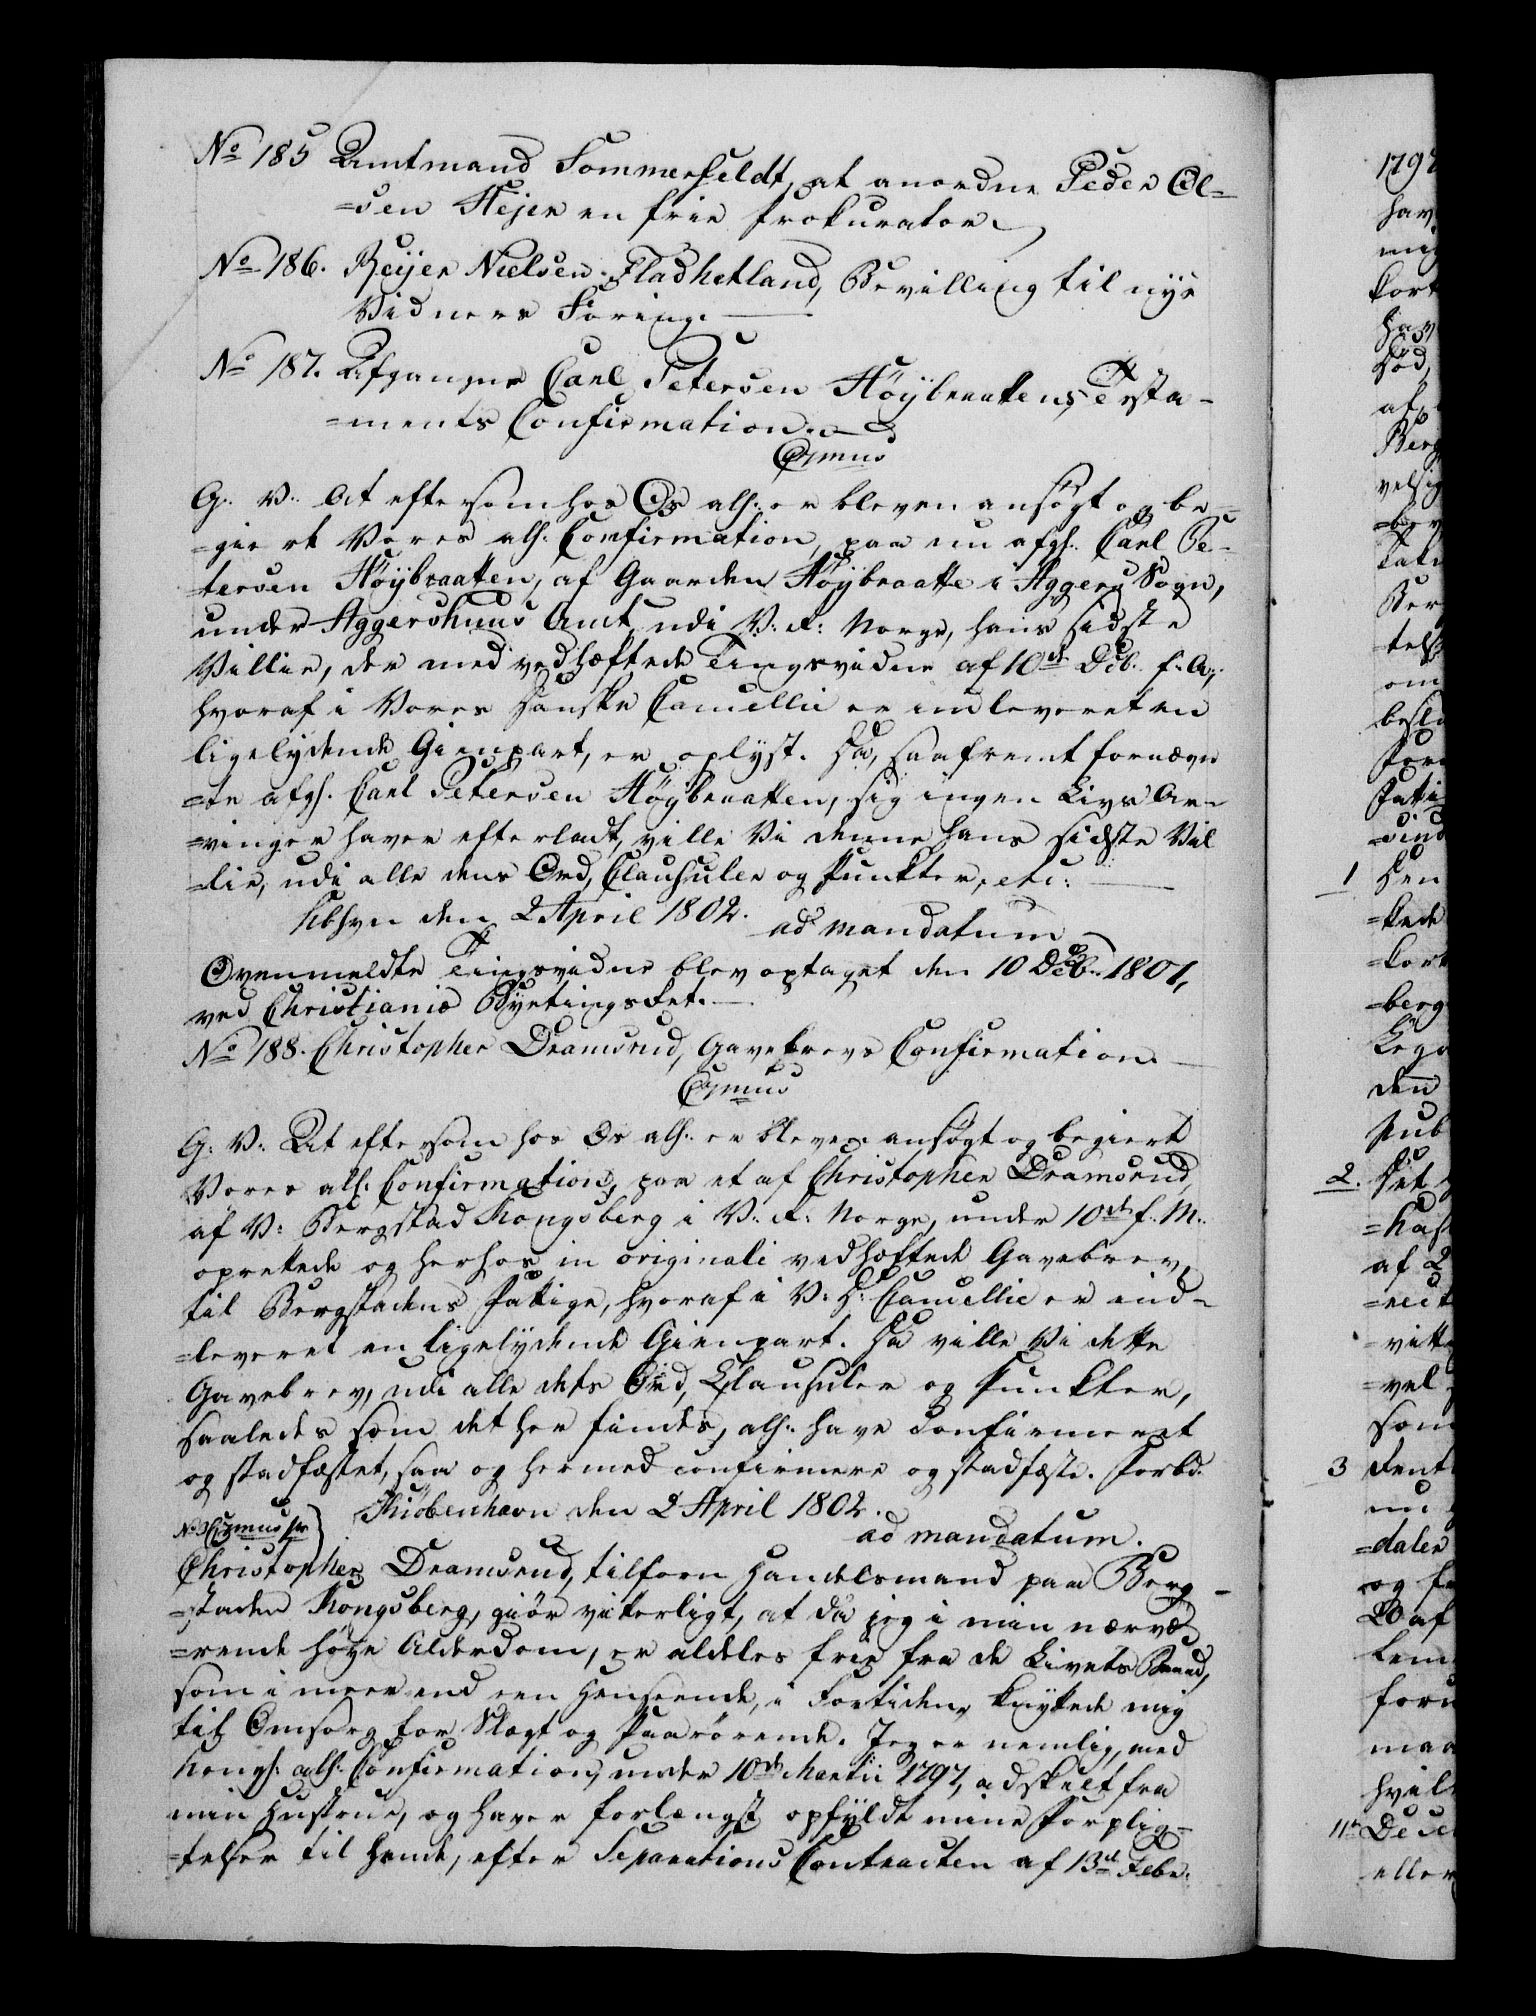 No 185 Amtmand Sommerfeldt, at anordne Peder Ol-
=sen Hejer en frie Prokurator
No 186. Reijer Nielsen Fladhetland, Bevilling til nye
Vidners Føring.
No 187. Afgangne Carl Petersen Höÿbraatens Testa-
=ments Confirmation.
G: V: At eftersom hos Os alh: er bleven ansøgt og be-
=giert Vores alh: Confirmation, paa nu afg: Carl Pe-
=tersen Höÿbraatten, af Gaarden Höÿbraatte i Aggers Sogn,
under Aggershuus Amt udi V: R: Norge, hans sidste
Villie, der med vedhæftede Tingsvidne af 10de Decb. f: A:,
hvoraf i Vores danske Cancellie er indleveret en
ligelydende Gienpart, er oplyst. Da, saafremt fornævn
=te afg: Carl Petersen Höÿbraatten, sig ingen Livs Ar-
=vinger haver efterladt, ville Vi denne hans sidste Vil
=lie, udi alle dens Ord, Clausuler og Punkter, etc:
Kbhvn den 2 April 1802. ad mandatum
Ovenmeldte Tingsvidne blev optaget den 10 Decb. 1801,
ved Christiania Byetingsret.
No 188. Christopher Dramsrud, Gavebrevs Confirmation.
G: V: At eftersom hos Os alh: er bleven ansøgt og begiert
Vores alh: Confirmation, paa et af Christopher Dramsrud,
af V: Bergstad Kongsberg i V: R: Norge, under 10de f: M:
oprettede og herhos in originali vedhæftede Gavebrev,
til Bergstadens Fattige, hvoraf i V: D: Cancellie er ind-
=leveret en ligelydende Gienpart. Da ville Vi dette
Gavebrev, udi alle dets Ord, Clausuler og Punkter,
saaledes som det her findes, alh: have confirmeret
og stadfæstet, saa og hermed confirmere og stadfæste. Forbd.
Kiøbenhavn den 2 April 1802.
ad mandatum.
Christopher Dramsrud, tilforn Handelsmand paa Berg-
=staden Kongsberg, giør vitterligt, at da jeg i min nærvæ
=rende høye Alderdom, er aldeles frie fra de Livets Baand,
som i meer end een Henseende, i Fortiden, knyttede mig
til Omsorg for Slægt og Paarørende. Jeg er nemlig, med
Kongl: alh: Confirmation, under 10de Martii 1797, adskilt fra
min Hustrue, og haver forlængst opfyldt mine Forplig-
=telser til hende, efter Separations Contracten af 13de Febr: